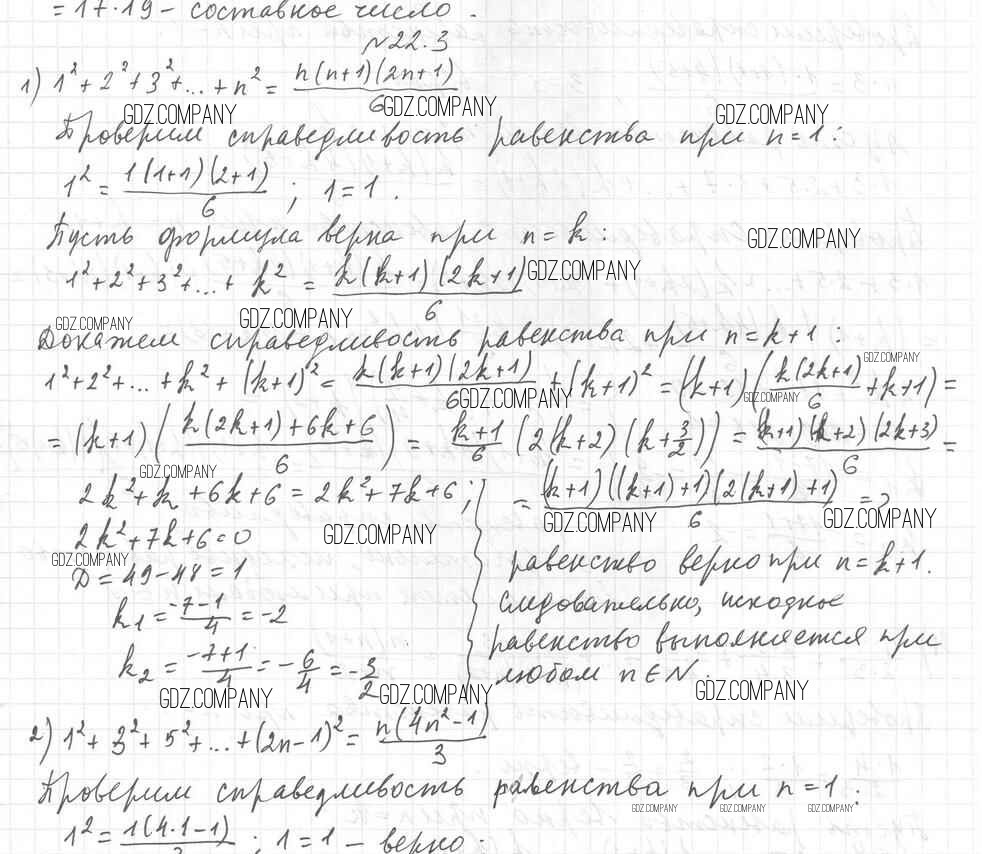 = 17·19 – составное число.
№22.3
1) 1² + 2² + 3² + ... + n² = n(n+1)(2n+1)/6
GDZ.COMPANY GDZ.COMPANY GDZ.COMPANY
Проверим справедливость равенства при n = 1:
1² = 1(1+1)(2+1)/6 ; 1 = 1.
Пусть формула верна при n = k:
GDZ.COMPANY
1² + 2² + 3² + ... + k² = k(k+1)(2k+1)/6
GDZ.COMPANY
GDZ.COMPANY GDZ.COMPANY
Докажем справедливость равенства при n = k+1:
1² + 2² + ... + k² + (k+1)² = k(k+1)(2k+1)/6 + (k+1)² = (k+1)(k(2k+1)/6 + k+1) =
GDZ.COMPANY GDZ.COMPANY GDZ.COMPANY
= (k+1)(k(2k+1)+6k+6/6) = k+1/6 (2(k+2)(k+3/2)) = (k+1)(k+2)(2k+3)/6 =
GDZ.COMPANY
2k² + k + 6k + 6 = 2k² + 7k + 6;
2k² + 7k + 6 = 0
GDZ.COMPANY
GDZ.COMPANY
D = 49 - 48 = 1
k₁ = -7-1/4 = -2
k₂ = -7+1/4 = -6/4 = -3/2
GDZ.COMPANY GDZ.COMPANY
= (k+1)((k+1)+1)(2(k+1)+1)/6 =>
GDZ.COMPANY GDZ.COMPANY
равенство верно при n = k+1.
Следовательно, исходное
равенство выполняется при
любом n ∈ N.
GDZ.COMPANY
2) 1² + 3² + 5² + ... + (2n-1)² = n(4n²-1)/3
Проверим справедливость равенства при n = 1:
GDZ.COMPANY GDZ.COMPANY GDZ.COMPANY
1² = 1(4·1-1)/3 ; 1 = 1 – верно;